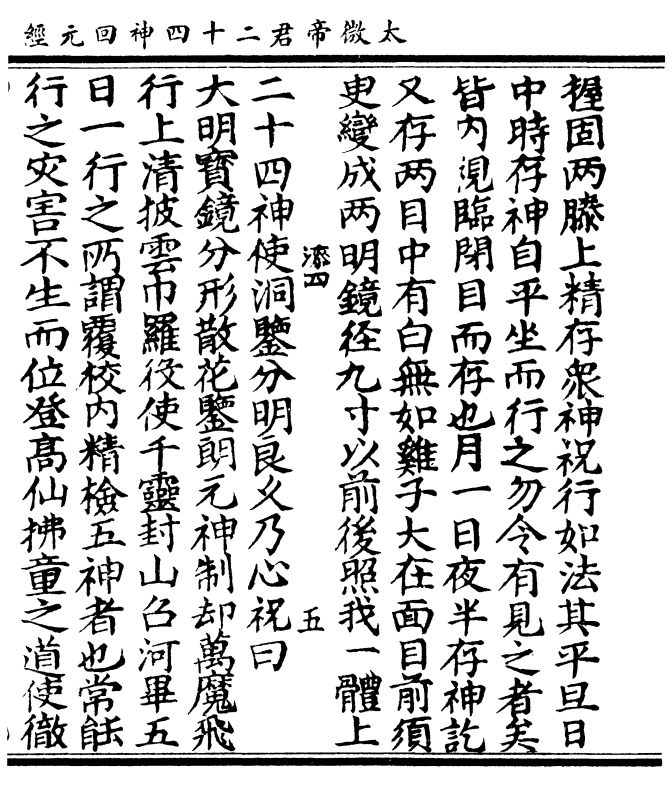 太微帝君二十四神回元經
握固两膝上精存衆神祝行如法其平旦日
中時存神自平坐而行之勿令有見之者矣
皆内視臨閉目而存也月一日夜半存神訖
又存两目中有白無如雞子大在面目前須
臾變成两明鏡径九寸以前後照我一體上
添四
五
二十四神使洞鑒分明良久乃心祝曰
大明寶鏡分形散花鑒朗元神制却萬魔飛
行上清披雲巾羅役使千靈封山召河畢五
日一行之所謂覆校内精檢五神者也常能
行之灾害不生而位登髙仙拂童之道使徹